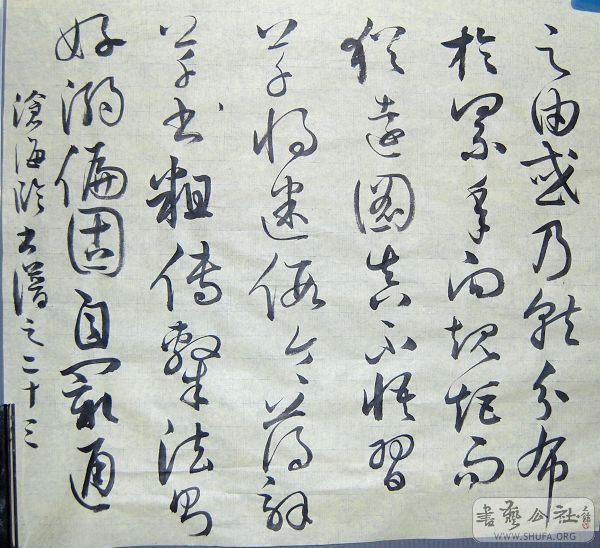 之由或乃就分布
於累年向規矩而
猶遠圖真不悟習
草將迷假令薄解
草書粗傳隸法則
好溺偏固自閡通
滄海臨書譜之二十三
書藝公社
WWW.SHUFA.ORG